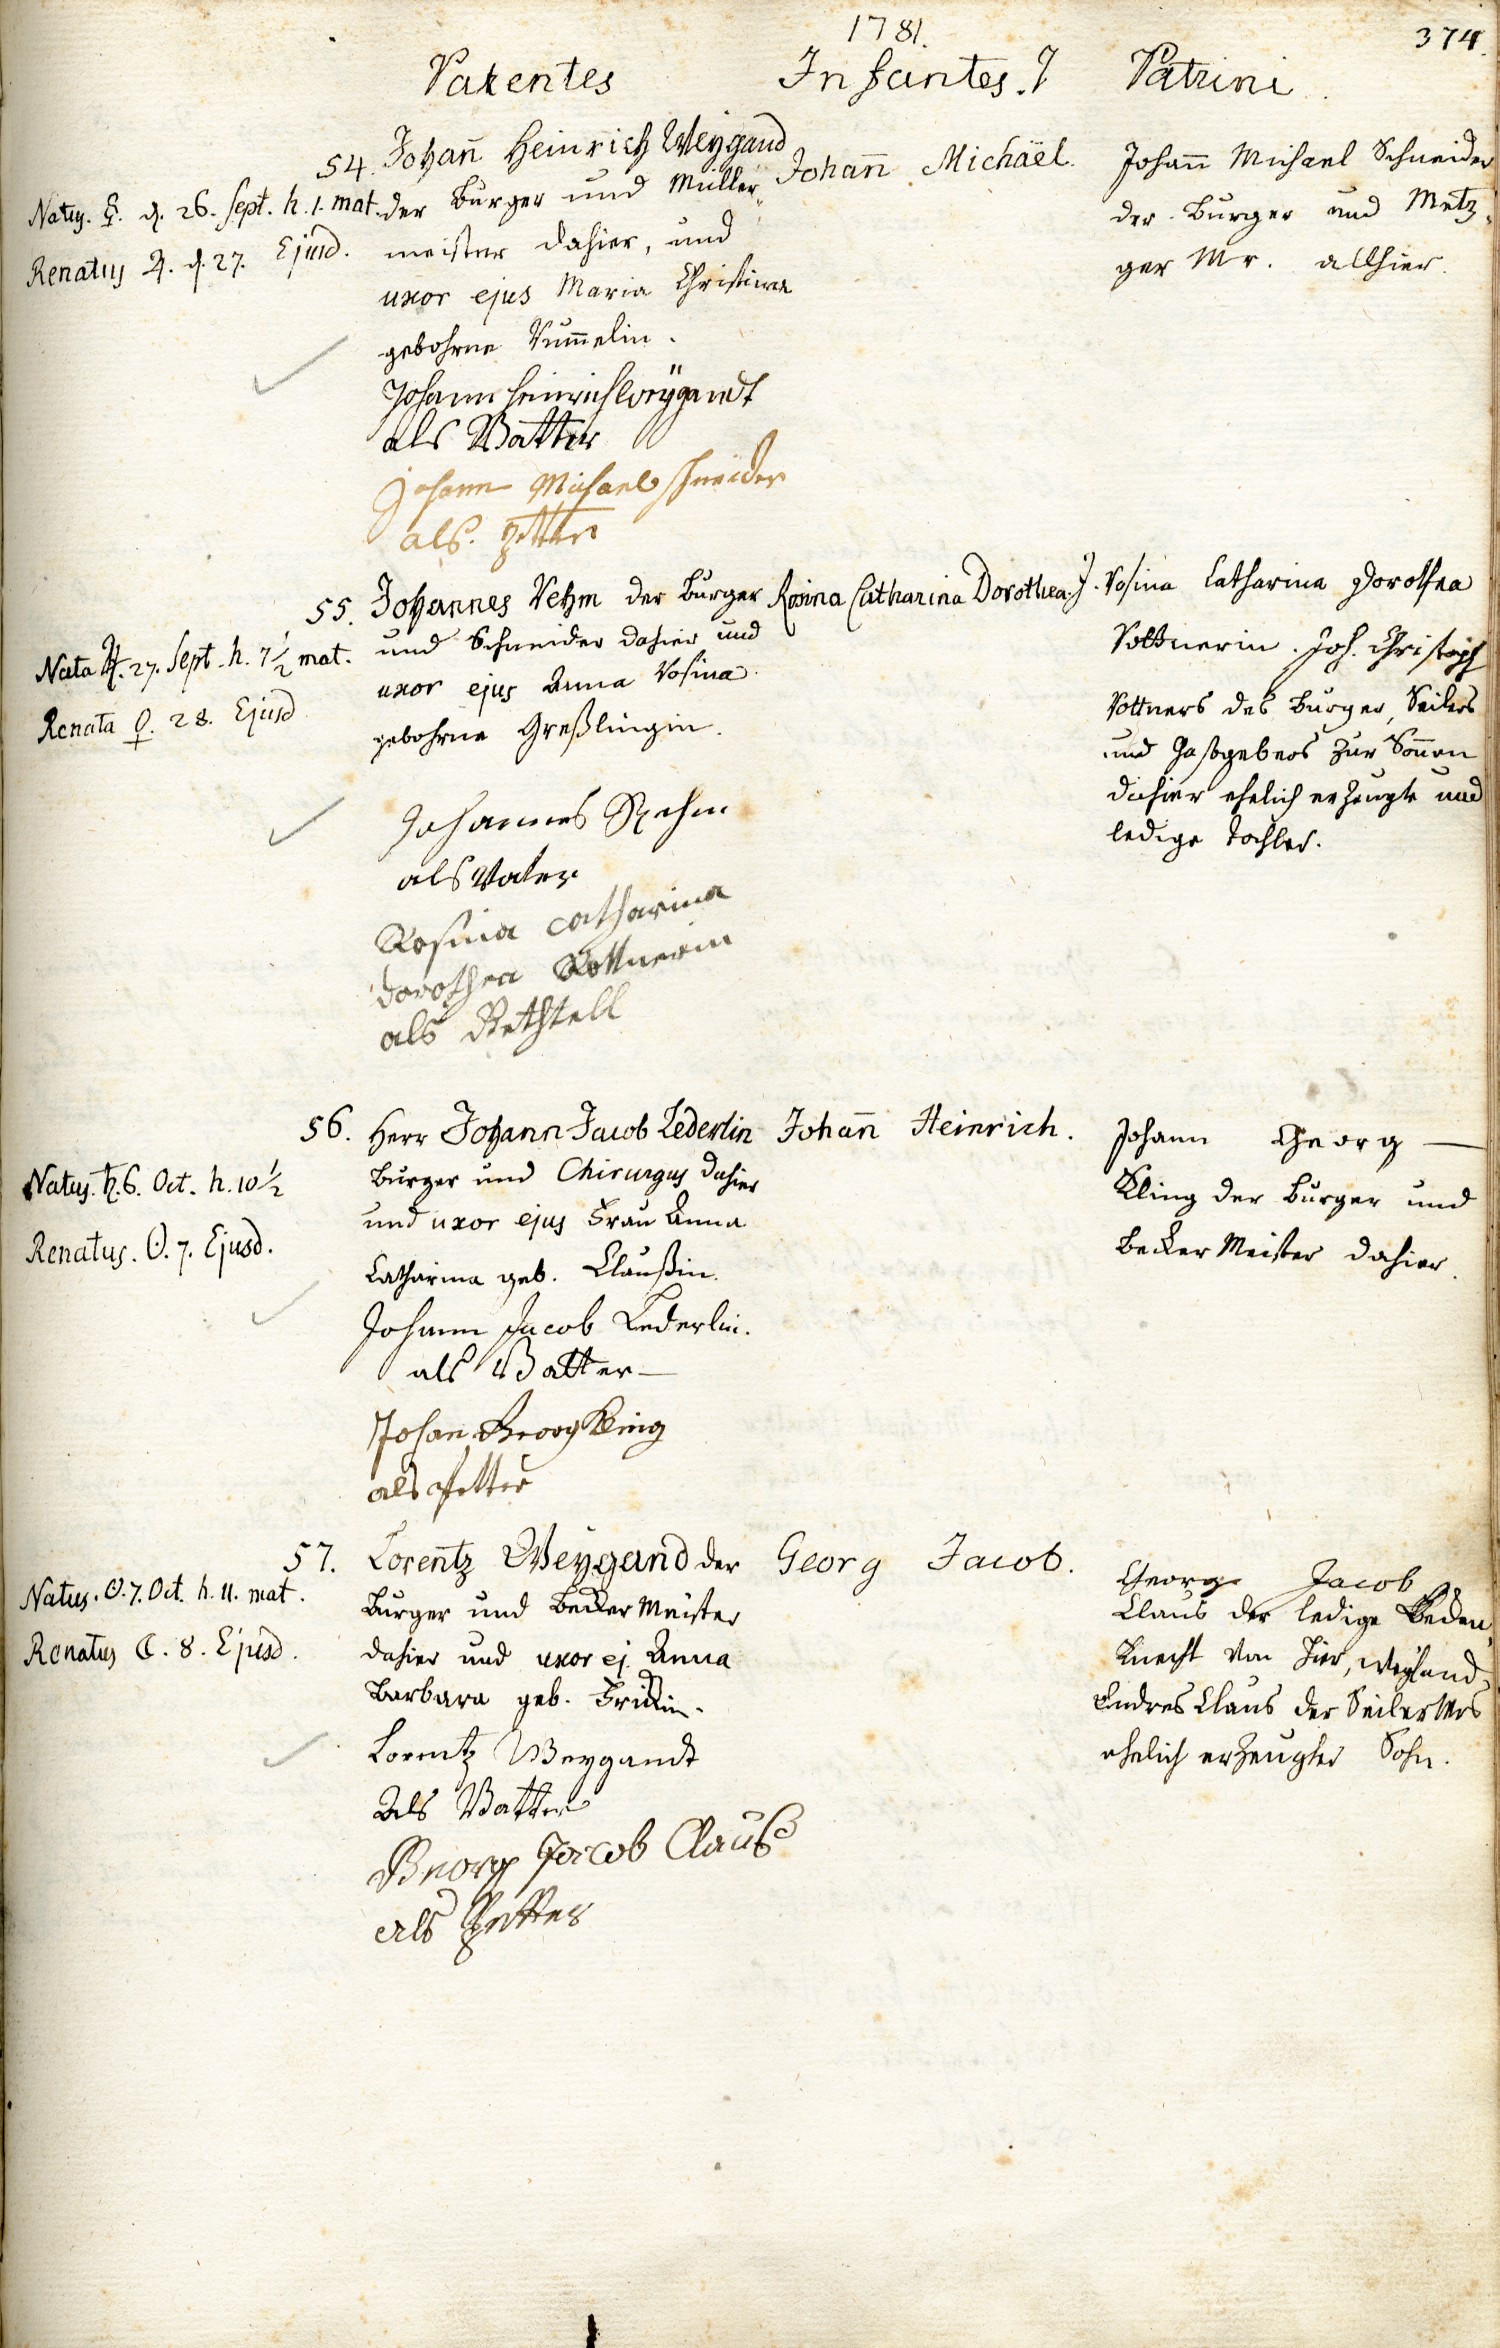 1781.
374.
Parentes
Infantes.
Patrini
54. Johan̄ Heinrich Weygand
der Burger und Müller
meister dahier, und
uxor ejus Maria Christina
gebohrne Rum̄elin.
Johann Heinrich Weÿgandt
als Vatter
Johann Michael schneider
als Petter
Natus. ☿. d. 26. Sept. h. 1. mat.
Renatus ♃. d. 27. Ejusd.
Johan̄ Michaël.
Johan̄ Michael Schneider
der Burger und Metz-
ger Mr. allhier.
55. Johannes Rehm der Burger
und Schneider dahier und
uxor ejus Anna Rosina
gebohrne Greßlingin.
Johannes Rehm
als Vater
Rosina catharina
dorothea Rottnerin
als
Nata ♃. 27. Sept. h. 7½ mat.
Renata ♀. 28. Ejusd
Rosina Catharina Dorothea.
Rosina Catharina Dorothea
Rottnerin. Joh. Christoph
Rottners des Burger, Seilers
und Gastgebers zur Son̄en
dahier ehelich erzeugte und
ledige Tochter.
56. Herr Johann Jacob Lederlin
Burger und Chirurgus dahier
und uxor ejus Frau Anna
Catharina geb. Claußin.
Johann Jacob Lederlin.
als Vatter
Johan Georg Kling
als Petter
Natus. ♄. 6. Oct. h. 10½
Renatus. ☉. 7. Ejusd.
Johan̄ Heinrich.
Johann Georg
Kling der Burger und
Becker Meister dahier.
57. Lorentz Weygand der
Burger und Becker Meister
dahier und uxor ej. Anna
Barbara geb. Frickin.
Lorentz Weygandt
Als Vatter
Georg Jacob Clauß
als Petter
Natus. ☉. 7. Oct. h. 11. mat.
Renatus ☾. 8. Ejusd.
Georg Jacob.
Georg Jacob
Claus der ledige Becken
Knecht von hier, weyland
Endres Claus der Seiler Mrs
ehelich erzeugter Sohn.